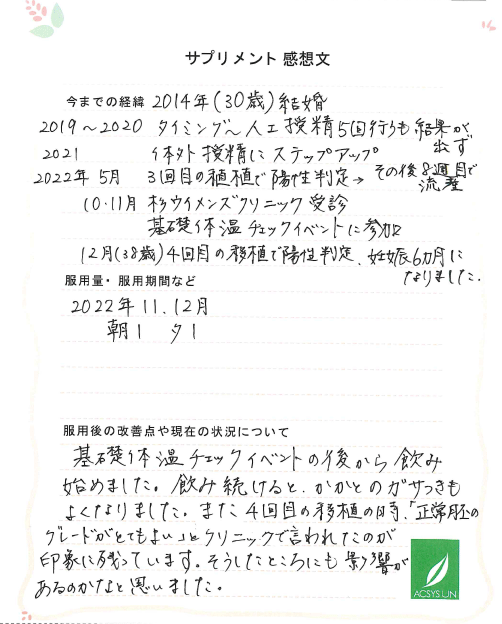 サプリメント 感想文
今までの経緯 2014年(30歳)結婚
2019～2020 タイミング～人工授精5回行うも結果が出ず
2021 体外授精にステップアップ
2022年5月 3回目の移植で陽性判定→その後8週目で流産
10・11月 杉ウイメンズクリニック受診
基礎体温チェックイベントに参加
12月(38歳)4回目の移植で陽性判定、妊娠6カ月になりました。
服用量・服用期間など
2022年11.12月
朝1 夕1
服用後の改善点や現在の状況について
基礎体温チェックイベントの後から飲み
始めました。飲み続けると、かかとのガサつきも
よくなりました。また4回目の移植の時、「正常胚の
グレードがとてもよい」とクリニックで言われたのが
印象に残っています。そうしたところにも影響が
あるのかなと思いました。
ACSYS UN